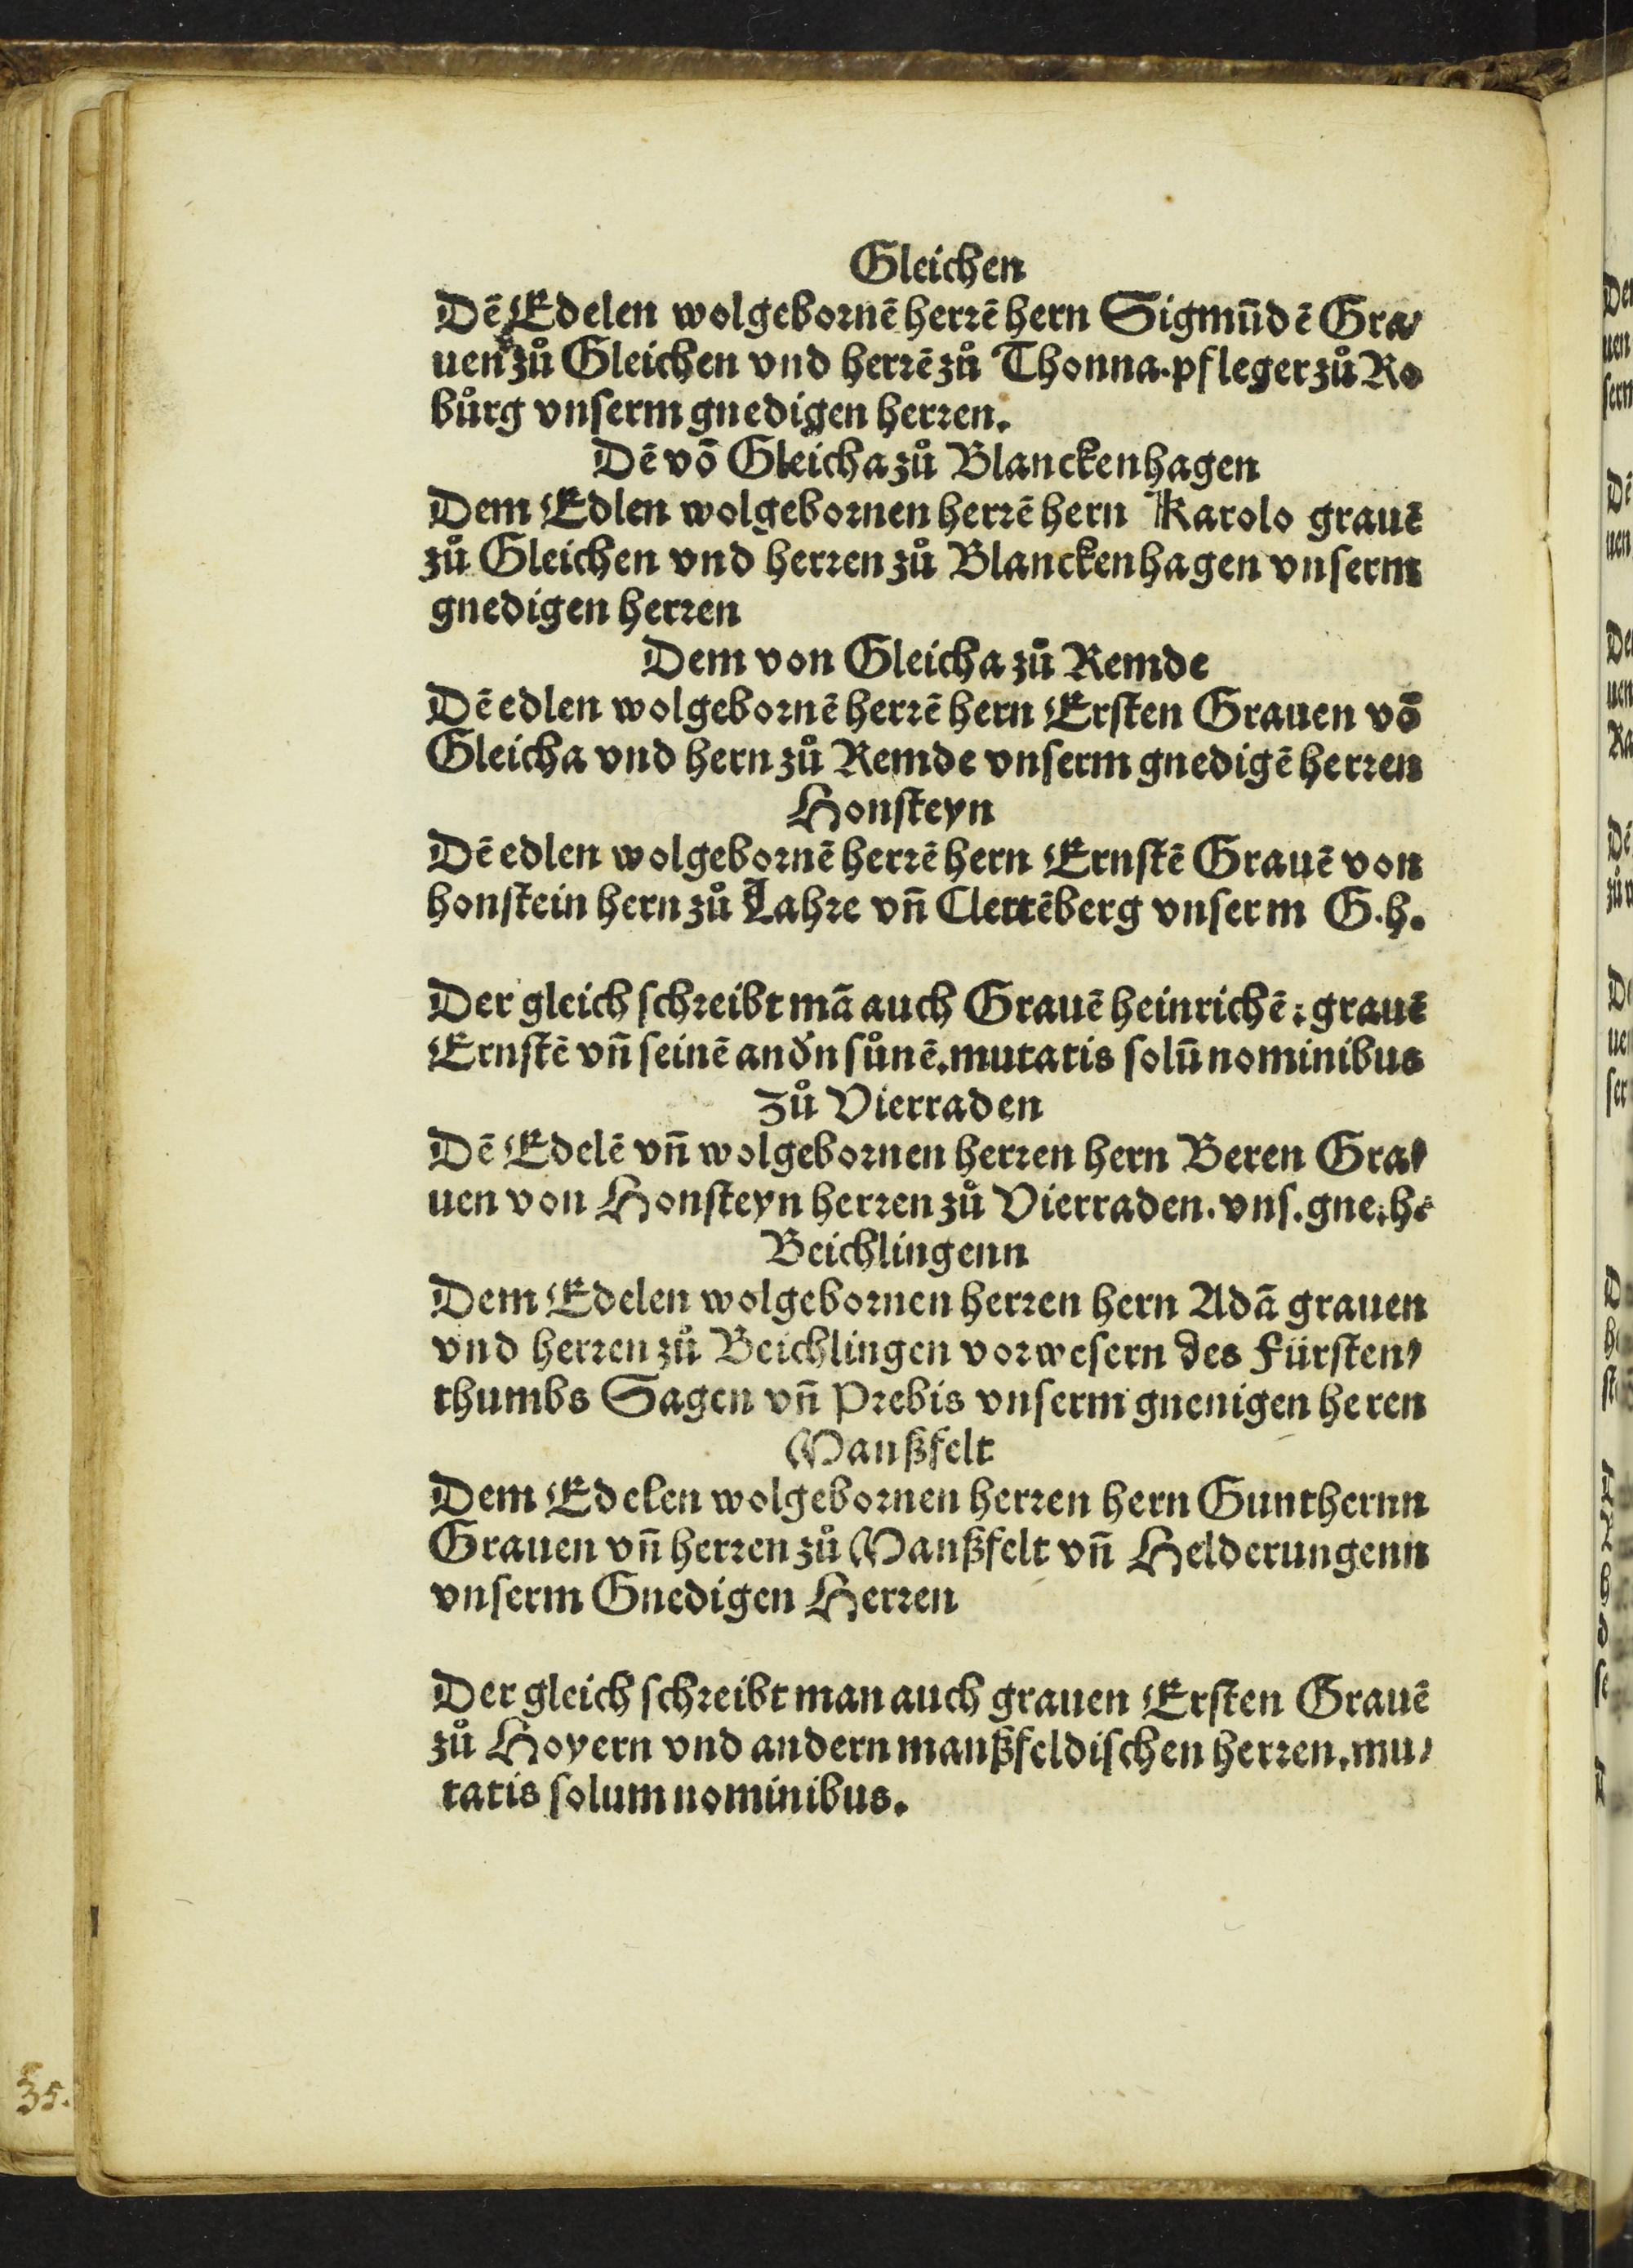 Gleichen
Dē Edelen wolgebornē herrē hern Sigmūdē Gra⸗
uen zů Gleichen vnd herrē zů Thonna. pfleger zů Ro
bůrg vnserm gnedigen herren.
Dē vō Gleicha zů Blanckenhagen
Dem Edlen wolgebornen herrē hern Karolo grauē
zů Gleichen vnd herren zů Blanckenhagen vnserm
gnedigen herren
Dem von Gleicha zů Remde
Dē edlen wolgebornē herrē hern Ersten Grauen vō
Gleicha vnd hern zů Remde vnserm gnedigē herren
Honsteyn
Dē edlen wolgebornē herrē hern Ernstē Grauē von
honstein hern zů Lahre vn̄ Clettēberg vnserm G.h.
Der gleich schreibt mā auch Grauē heinrichē: grauē
Ernstē vn̄ seinē andn̄ sůnē. mutatis solū nominibus
Zů Vierraden
Dē Edelē vn̄ wolgebornen herren hern Beren Gra⸗
uen von Honsteyn herren zů Vierraden. vns. gne. h.
Beichlingenn
Dem Edelen wolgebornen herren hern Adā grauen
vnd herren zů Beichlingen vorwesern des Fürsten⸗
thumbs Sagen vn̄ Prebis vnserm gnenigen heren
Manßfelt
Dem Edelen wolgebornen herren hern Gunthernn
Grauen vn̄ herren zů Manßfelt vn̄ Helderungenn
vnserm Gnedigen Herren
Der gleich schreibt man auch grauen Ersten Grauē
zů Hoyern vnd andern manßfeldischen herren. mu⸗
tatis solum nominibus.
35.